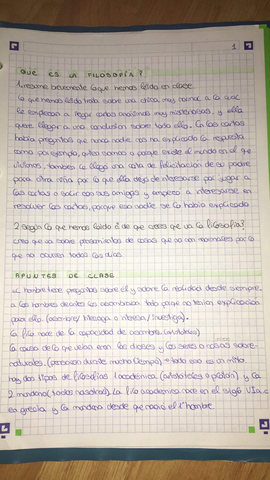 1
QUE ES LA FILOSOFÍA?
1.resume brevemente lo que hemos leido en clase
lo que hemos leido trata sobre una chica muy normal a la cual
le empiezan a llegar cartas anonimas muy misteriosas, y ella
quiere llegar a una conclusion sobre todo ello. En las cartas
habia preguntas que nunca nadie nos ha explicado la respuesta
como por ejemplo, quien somos o porque existe el mundo en el que
vivimos, tambien le llega una carta de felicitacion de su padre
para otra niña por lo que ella dejo de interesarse por jugar a
las cartas o salir con sus amigas y empezo a interesarse en
resolver las cartas, porque eso nadie se lo habia explicado
2 según lo que hemos leido ¿ de que crees que va la filosofia?
creo que va sobre pensamientos de cosas que no son normales por lo
que no ocurren todos los dias.
APUNTES DE CLASE
el hombre tiene preguntas sobre el y sobre la realidad desde siempre.
a los hombres de antes les asombraba todo porque no tenian explicacion
para ello. (asombra/ interroga o interesa/ investiga).
la filo nace de la capacidad de asombro (aristoteles)
la causa de lo que veian eran los dioses y los seres o cosas sobre-
naturales. (pensaron durante mucho tiempo) → todo eso es un mito
hay dos tipos de filosofias 1 academica (aristoteles o platón) y la
2 mundana( todos nosotros). La filo academica nace en el siglo VI a.c
en grecia y la mundana desde que nacio el 1º hombre.